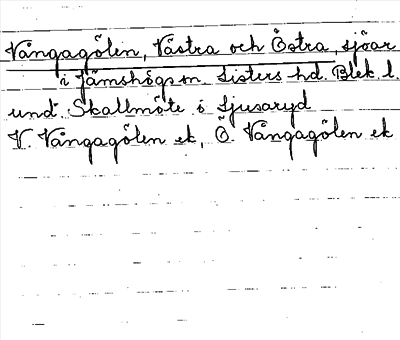 Vångagölen, Västra och Östra, sjöar
i Jämshögs sn. Listers hd. Blek. l.
und. Skallmöte i Ljusaryd
V. Vångagölen ek, Ö. Vångagölen ek